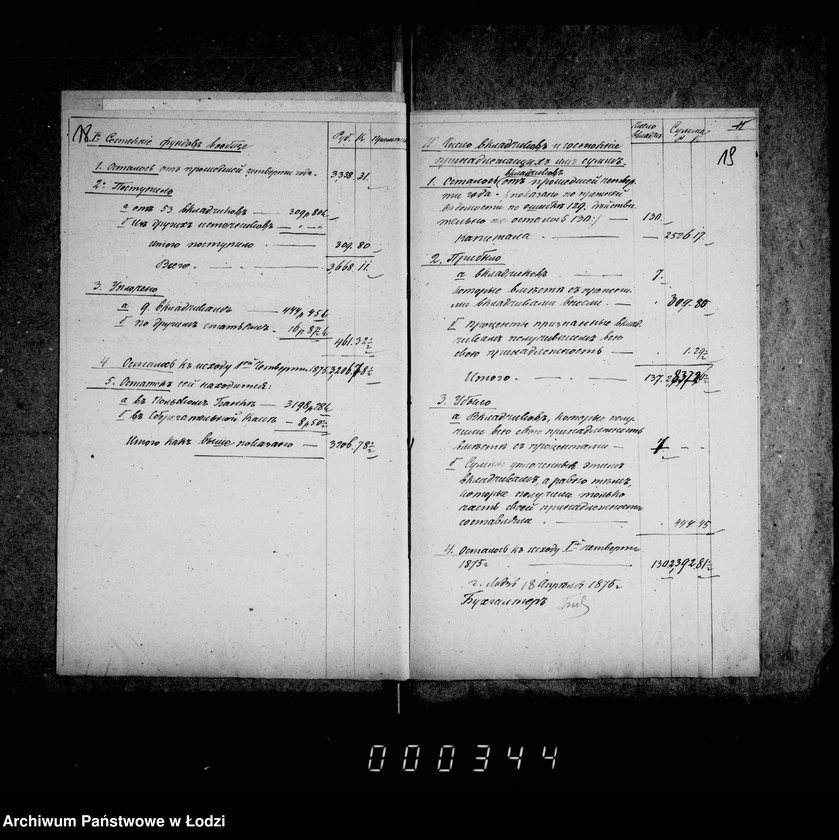 18
Iе Состояніе фундовъ вообще
Руб. К.
1. Осталось отъ прошедшей четверти
3,358. 31.
2. Поступило
а отъ 53. вкладчиковъ — 309р 80к
б Изъ другихъ источниковъ — " —
итого поступило — 309. 80
Всего. 3,668. 11.
3. Уплочено
а 9. вкладчикамъ — 444р 45к
б по другимъ статьямъ. 16р
461. 32½
4 Осталось къ исходу Iой Четверти 1875. 3,206. 78½
5. Остатокъ сей находится:
а въ Польскомъ Банкѣ — 3198р 28к
б въ Сберегательной Кассѣ — 8р 50½
Итого какъ выше показано — 3206. 78½
19
II Число вкладчиковъ и состояніе
принадлежащихъ имъ суммъ.
Число
Сумма
р к
вкладчиковъ
1. Осталось отъ прошедшей четвер-
ти года. (показано по прежней
вѣдомости по ошибкѣ 129, дѣйстви
тельно же осталось 130:) — 130.
Капитала — 2526 17.
2. Прибыло
а вкладчиковъ — 7.
которые вмѣстѣ съ прежни-
ми вкладчиками внесли. — 309. 80
б проценты признанные вклад-
чикамъ получившимъ всю
свою принадлежность — 1. 29½
Итого. 137.
3. Убыло
а Вкладчиковъ, которые полу-
чили всю свою принадлежность
вмѣстѣ съ процентами — 7 — -
б Суммы уплоченныя этимъ
вкладчикамъ, а равно тѣмъ,
которые получили только
часть своей принадлежности
составляли — 444. 45
4. Осталось къ исходу Iой четверти
1875г — 130 2,392. 81½
г. Лодзь 18 Апрѣля 1875г
Бухгалтеръ
000344
Archiwum Państwowe w Łodzi